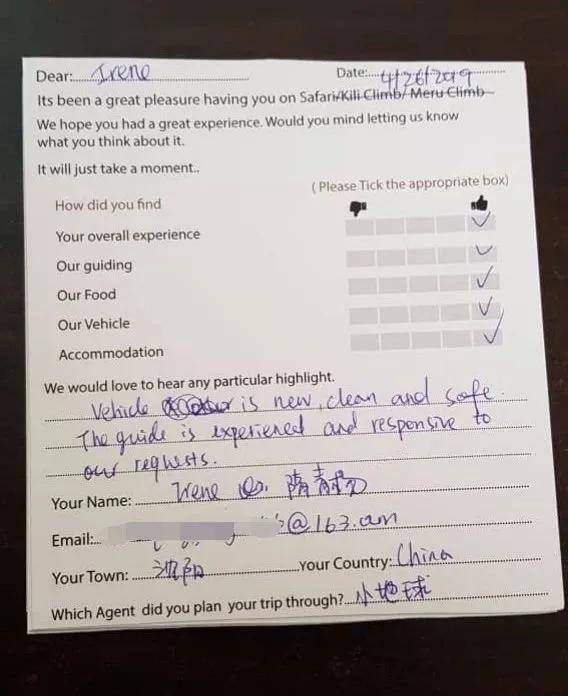 Dear: Irene Date: 4/26/2019
Its been a great pleasure having you on Safari/Kili Climb/ Meru Climb
We hope you had a great experience. Would you mind letting us know
what you think about it.
It will just take a moment..
( Please Tick the appropriate box)
How did you find
Your overall experience
Our guiding
Our Food
Our Vehicle
Accommodation
We would love to hear any particular highlight.
Vehicle is new, clean and safe.
The guide is experiened and responsive to
our requests.
Your Name: Irene
Email: @163.com
Your Town: 沈阳 Your Country: China
Which Agent did you plan your trip through? 小地球